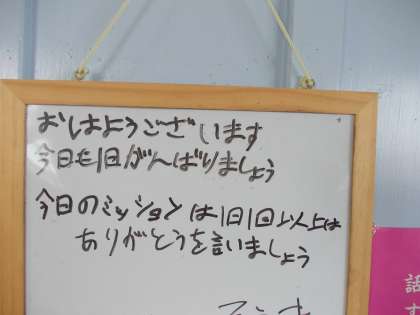 おはようございます
今日も1日がんばりましょう
今日のミッションは1日1回以上は
ありがとうを言いましょう
話